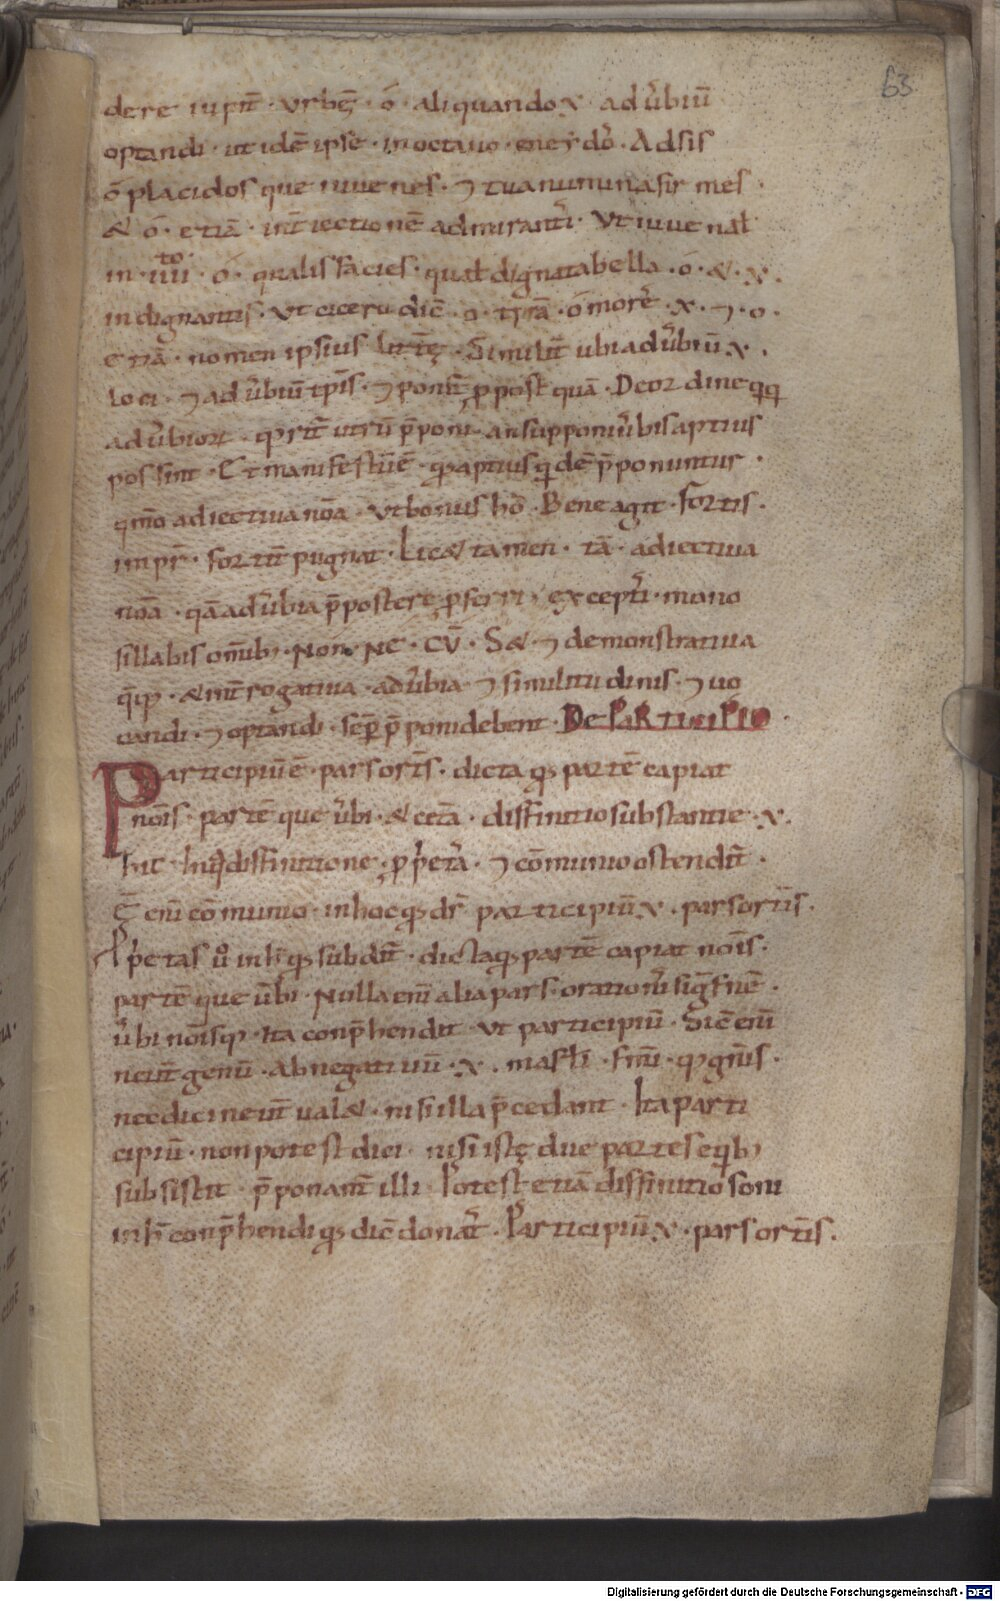 63
dere iupit̄ · vrbē · ó · aliquando · x · adu̓biū
optandi · ut idē ipse · in octauo · eneydo᷒ · Adsis
ó placidosque iuuenes · ⁊ tua numina sir mes ·
& ó · etiā · int̄iectionē admirant̓i · Vt iuuenaƚ
in · iiii^to · ó · qualis facies · quaƚ digna tabella · ó · & · x ·
indignantis · Vt cicero dic̄ · o · t̄rā · ó morēs · x · ⁊ · o ·
etiā · nomen ipsius litt̄ę · Similit̄ ubi adu̓biū · x ·
loci · ⁊ adu̓biū tp̄is · ⁊ ponit̄ ꝓ postquā · De ordine qq
adu̓bioꝝ · q̄rit̄ utrū p̄poni · an supponi u̓bis aptius
possint · Et manifestū ē · qd aptius qidē p̄ponuntur ·
qm̄o adiectiua noā · Vt bonus hō · Bene agit · fortis ·
imp̄r · fortit̄ pugnat · Lic& tamen · tā · adiectiua
noā · qā adu̓bia p̄postere ꝓferri · except̓i · mono
sillabis om̄ibꝫ · Non · NC · CV̄ · S& · ⁊ demonstratiua
q̄qꝫ · & int̄rogatiua · adu̓bia · ⁊ similitudinis · ⁊ uo
candi · ⁊ optandi · semꝑ p̄poni debent · De PARTICIPIO ·
Participiū ē · pars or̄tis · dicta qd partē capiat
nōis · partēque u̓bi · & cet̄a · diffinitio substantie · x ·
hic · huiꝰ diffinitione · ꝓp̓etā · ⁊ cōmunio ostendit̄ ·
ē eni̅ cōmunio · in hoc qd dr̄ participiū · x · pars or̄tis ·
Prp̓etas u̓o in h̄ qd subdit̄ · dicta qd partē capiat nōis ·
partēque u̓bi · Nulla eni̅ alia pars orationis sigfinē ·
u̓bi nōisqꝫ · ita conp̄hendit · Vt participiū · Sic eni̅
neut̄ genū · Abnegatiuū · x · masƚi · fm̄i · qꝫ gn̄is ·
nec dici neut̄ ual& · nisi illa p̄cedant · Ita parti
cipiū · non potest dici · nisi istę due partes eqbꝫ
subsistit · p̄ponant̄ illi · Potest etiā diffinitio soni
in h̄ conp̄hendi qd dic̄ donat̓ · Participiū · x · pars or̄tis ·
Digitalisierung gefördert durch die Deutsche Forschungsgemeinschaft - DFG